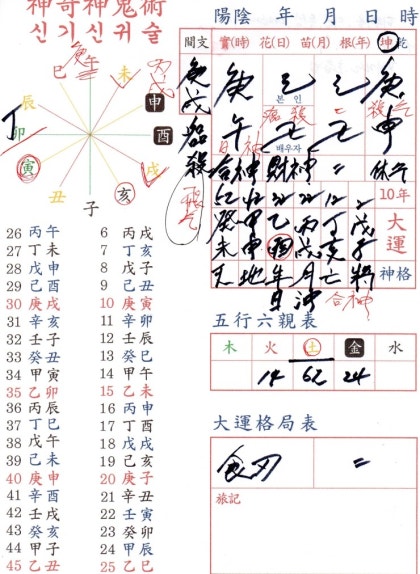 神奇神鬼術
신기신귀술
陽陰 年 月 日 時
間支 實(時) 花(日) 苗(月) 根(年) 坤 乾
庚 庚 己 己 庚
戌 午 본인 申
배우자
殺 合神 財神 〃
10年
大運
癸 甲 乙 丙 丁 戊
未 申 酉 戌 亥 子
天 地 年 月 亡 將 神格
日 沖 合神
庚午
丙戌
巳 未
辰 申
丁 卯 酉
寅 戌
丑 亥
子
26 丙午 6 丙戌
27 丁未 7 丁亥
28 戊申 8 戊子
29 己酉 9 己丑
30 庚戌 10 庚寅
31 辛亥 11 辛卯
32 壬子 12 壬辰
33 癸丑 13 癸巳
34 甲寅 14 甲午
35 乙卯 15 乙未
36 丙辰 16 丙申
37 丁巳 17 丁酉
38 戊午 18 戊戌
39 己未 19 己亥
40 庚申 20 庚子
41 辛酉 21 辛丑
42 壬戌 22 壬寅
43 癸亥 23 癸卯
44 甲子 24 甲辰
45 乙丑 25 乙巳
五行六親表
木 火 土 金 水
14 62 24
大運格局表
食刃 〃
旅記